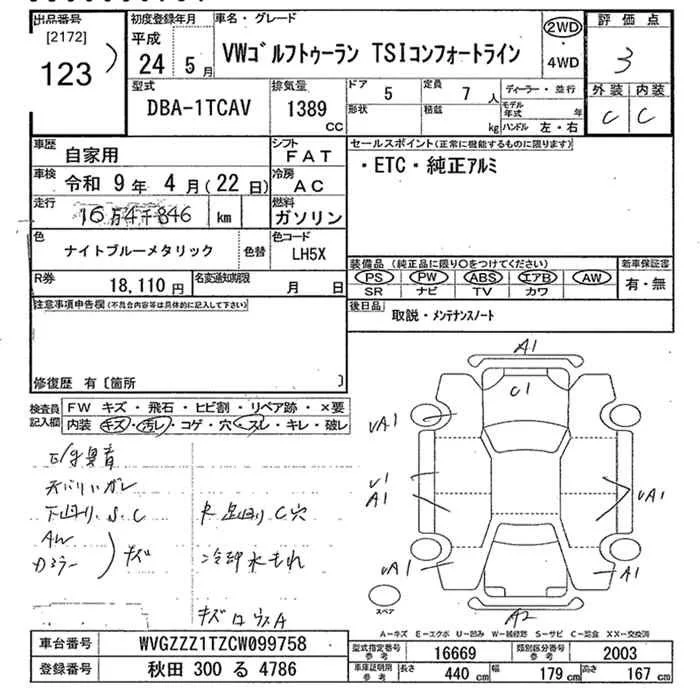 出品番号
[2172]
123
初度登録年月
平成
24 5月
車名・グレード
VWゴルフトゥーラン TSIコンフォートライン
2WD
・
4WD
評価点
3
外装 内装
C C
型式
DBA-1TCAV
排気量
1389
CC
ドア
5
定員
7人
形状
積載
kg
ディーラー・並行
モデル年式 年
ハンドル 左・右
車歴
自家用
シフト
FAT
車検
令和 9年 4月(22日)
冷房
AC
走行
16万4千846 km
燃料
ガソリン
色
ナイトブルーメタリック
色替
色コード
LH5X
R券
18,110円
名変通知期限
月 日
セールスポイント(正常に機能するものに限ります)
・ETC・純正アルミ
装備品 (純正品に限り○をつけてください)
PS PW ABS エアB AW
SR ナビ TV カワ
新車保証書
有・無
後日品
取説・メンテナンスノート
注意事項申告欄(不具合内容等は具体的に記入して下さい)
修復歴 有〔箇所 〕
検査員記入欄
FW キズ・飛石・ヒビ割・リペア跡・×要
内装 キズ・汚レ・コゲ・穴・スレ・キレ・破レ
下回り S.C
AW
カラー
キズ
冷却水もれ
C穴
A1
C1
UA1
U1
A1
UA1
UA1
A1
A2
スペア
A-キズ E-エクボ U-凹み W-補修跡 S-サビ C-腐食 XX-交換済
車台番号
WVGZZZ1TZCW099758
登録番号
秋田 300 る 4786
型式指定番号
参考
16669
類別区分番号
参考
2003
車庫証明用
参考
長さ
440 cm
幅
179 cm
高さ
167 cm